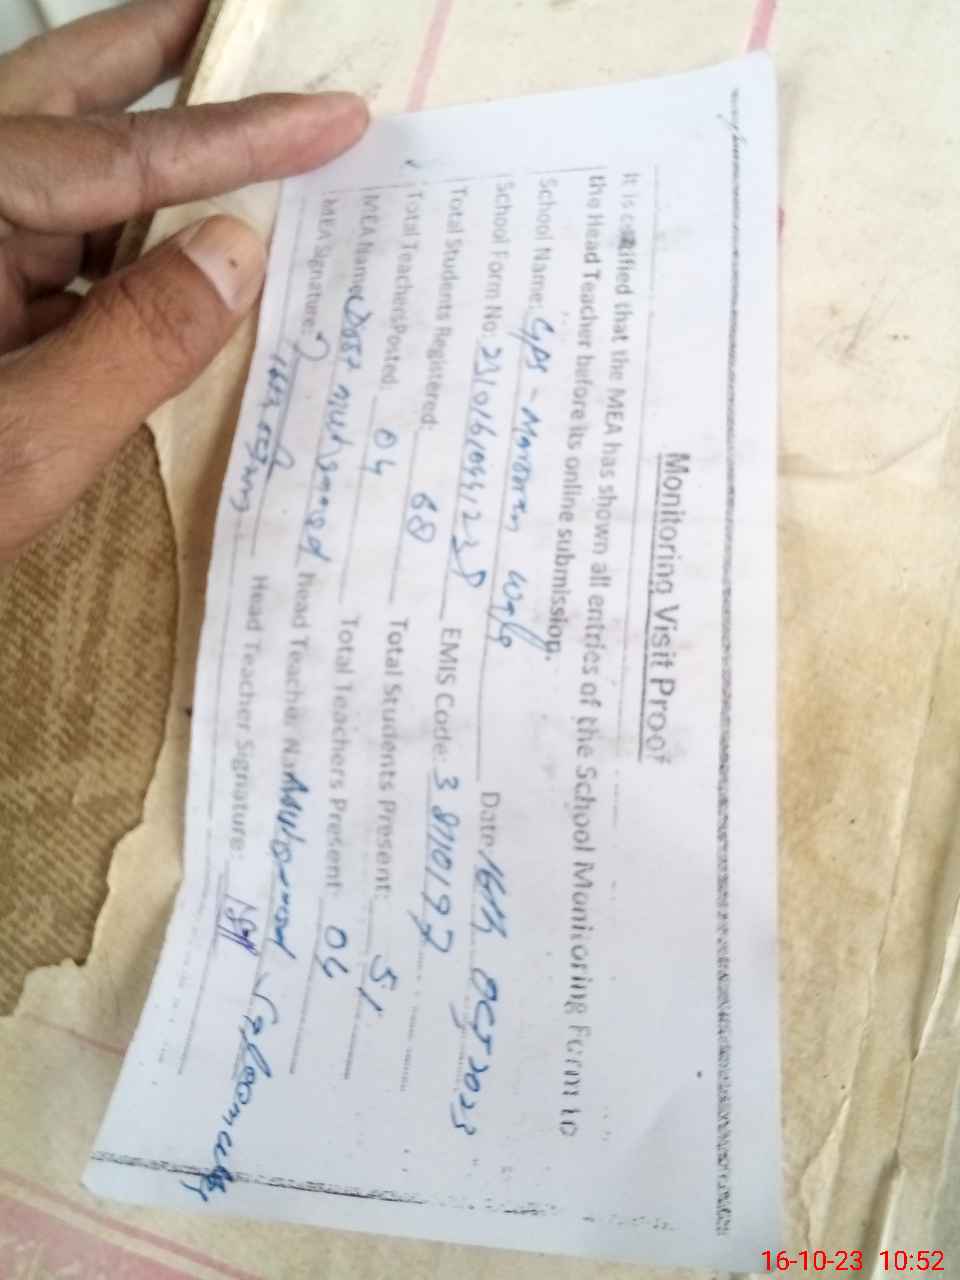 Monitoring Visit Proof
It is certified that the MEA has shown all entries of the School Monitoring Form to
the Head Teacher before its online submission.
School Name: GPS - Date: 16th Oct 2023
School Form No: EMIS Code: 38110197
Total Students Registered: 68 Total Students Present: 51
Total Teachers Posted: 04 Total Teachers Present: 04
MEA Name: Dost Muhammad Head Teacher Name: Muhammad
MEA Signature: Head Teacher Signature:
16-10-23 10:52